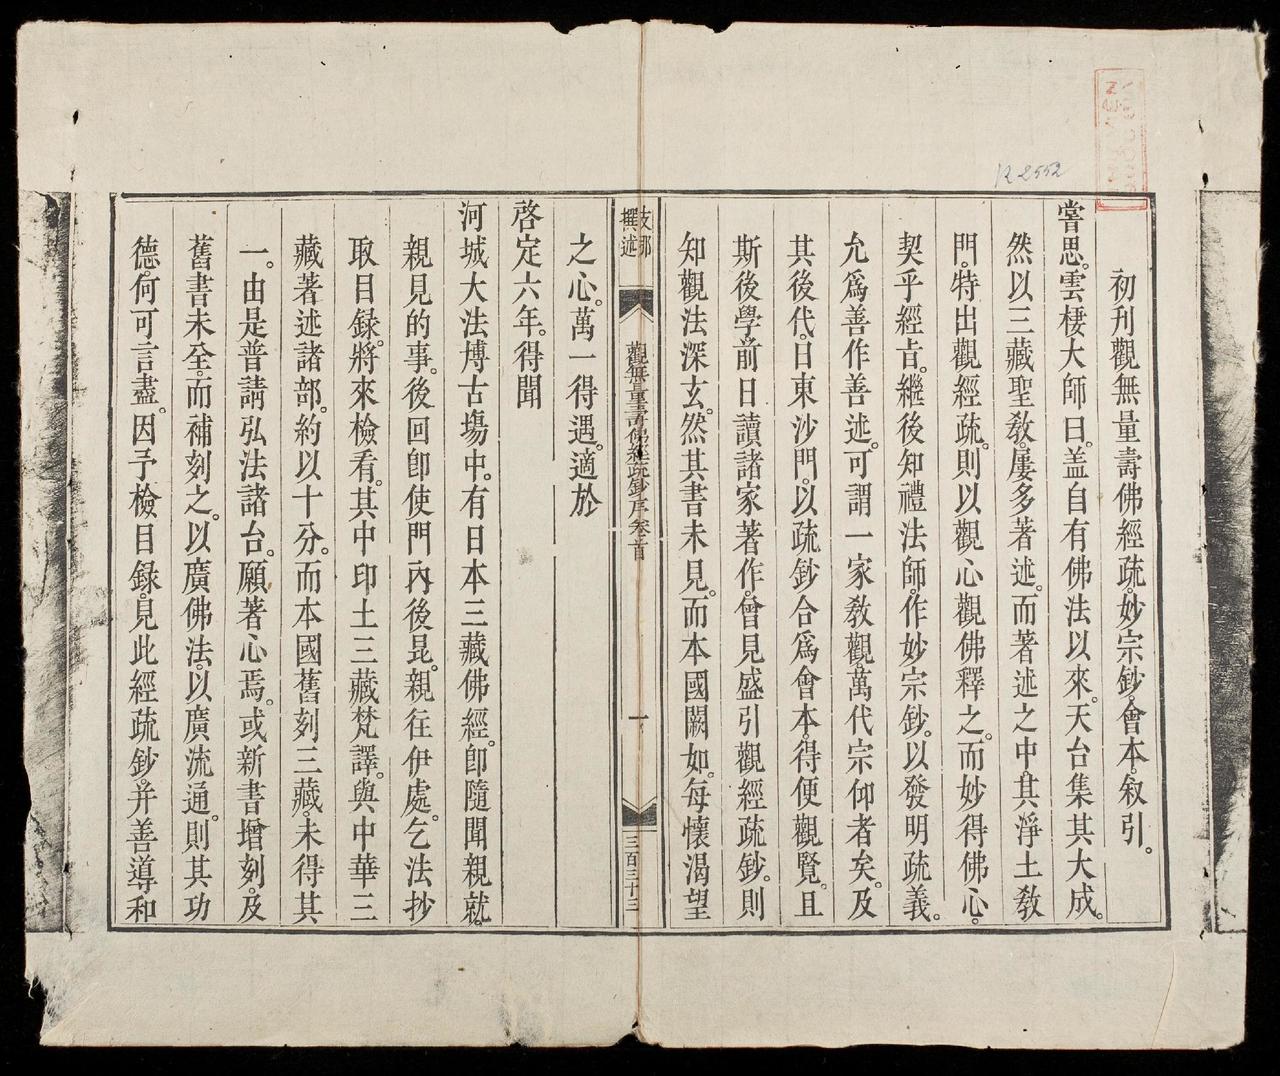 初刊觀無量壽佛經疏。妙宗鈔。會本。叙引。
嘗思。雲棲大師曰。盖自有佛法以來。天台集其大成。
然以三藏聖敎。屢多著述。而著述之中。其淨土敎
門。特出觀經疏。則以觀心觀佛釋之。而妙得佛心。
契乎經旨。繼後知禮法師。作妙宗鈔。以發明疏義。
允爲善作善述。可謂一家敎觀。萬代宗仰者矣。及
其後代。日東沙門。以疏鈔合爲會本。得便觀覽。且
斯後學。前日讀諸家著作。曾見盛引觀經疏鈔。則
知觀法深玄。然其書未見。而本國闕如。每懷渴望
支那
撰述
觀無量壽佛經疏鈔序卷首
一
三百三十三
之心。萬一得遇。適於
啓定六年。得聞
河城大法博古塲中。有日本三藏佛經。卽隨聞親就。
親見的事。後回卽使門內後昆。親往伊處。乞法抄
取目録。將來檢看。其中印土三藏梵譯。與中華三
藏著述諸部。約以十分。而本國舊刻三藏。未得其
一。由是普請弘法諸台。願著心焉。或新書增刻。及
舊書未全。而補刻之。以廣佛法。以廣流通。則其功
德。何可言盡。因予檢目録。見此經疏鈔。并善導和
R 2552